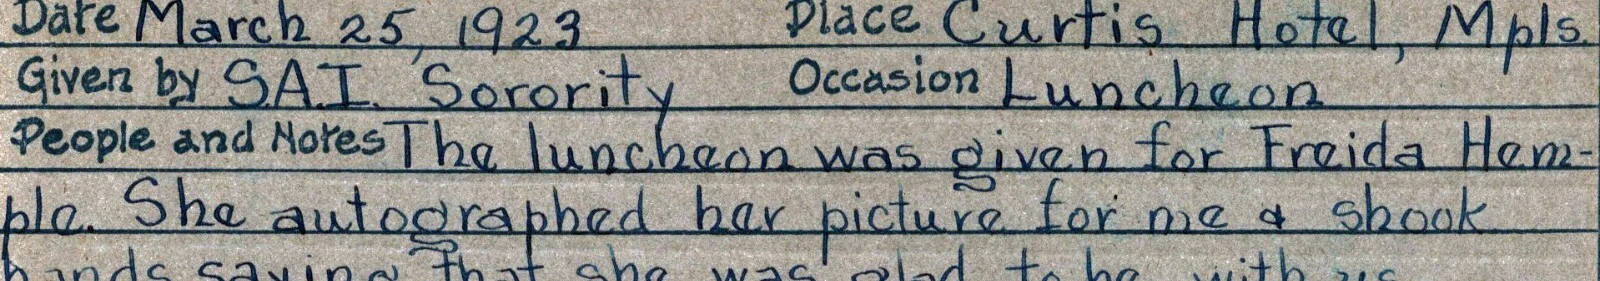 Date March 25, 1923 Place Curtis Hotel, Mpls.
Given by S.A.I. Sorority Occasion Luncheon
People and Notes The luncheon was given for Freida Hem-
ple. She autographed her picture for me & shook
hands saying that she was glad to be with us